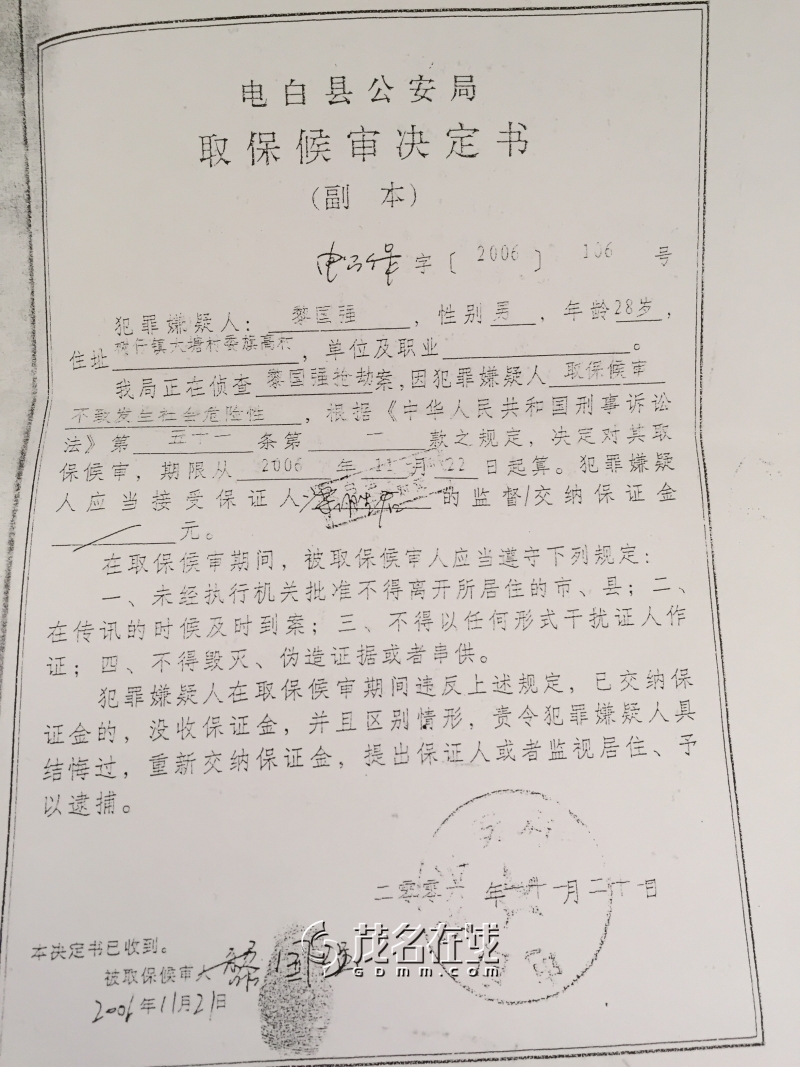 电白县公安局
取保候审决定书
（副 本）
字〔2006〕106号
犯罪嫌疑人：黎国强，性别男，年龄28岁，
住址树仔镇大塘村委旗高村，单位及职业。
我局正在侦查黎国强抢劫案，因犯罪嫌疑人取保候审
不致发生社会危险性，根据《中华人民共和国刑事诉讼
法》第五十一条第一款之规定，决定对其取
保候审，期限从2006年11月22日起算。犯罪嫌疑
人应当接受保证人的监督/交纳保证金
元。
在取保候审期间，被取保候审人应当遵守下列规定：
一、未经执行机关批准不得离开所居住的市、县；二、
在传讯的时候及时到案；三、不得以任何形式干扰证人作
证；四、不得毁灭、伪造证据或者串供。
犯罪嫌疑人在取保候审期间违反上述规定，已交纳保
证金的，没收保证金，并且区别情形，责令犯罪嫌疑人具
结悔过，重新交纳保证金，提出保证人或者监视居住、予
以逮捕。
二零零六年十一月二十一日
本决定书已收到。
被取保候审人 黎国强
2006年11月21日
茂名在线
Gdmm.com